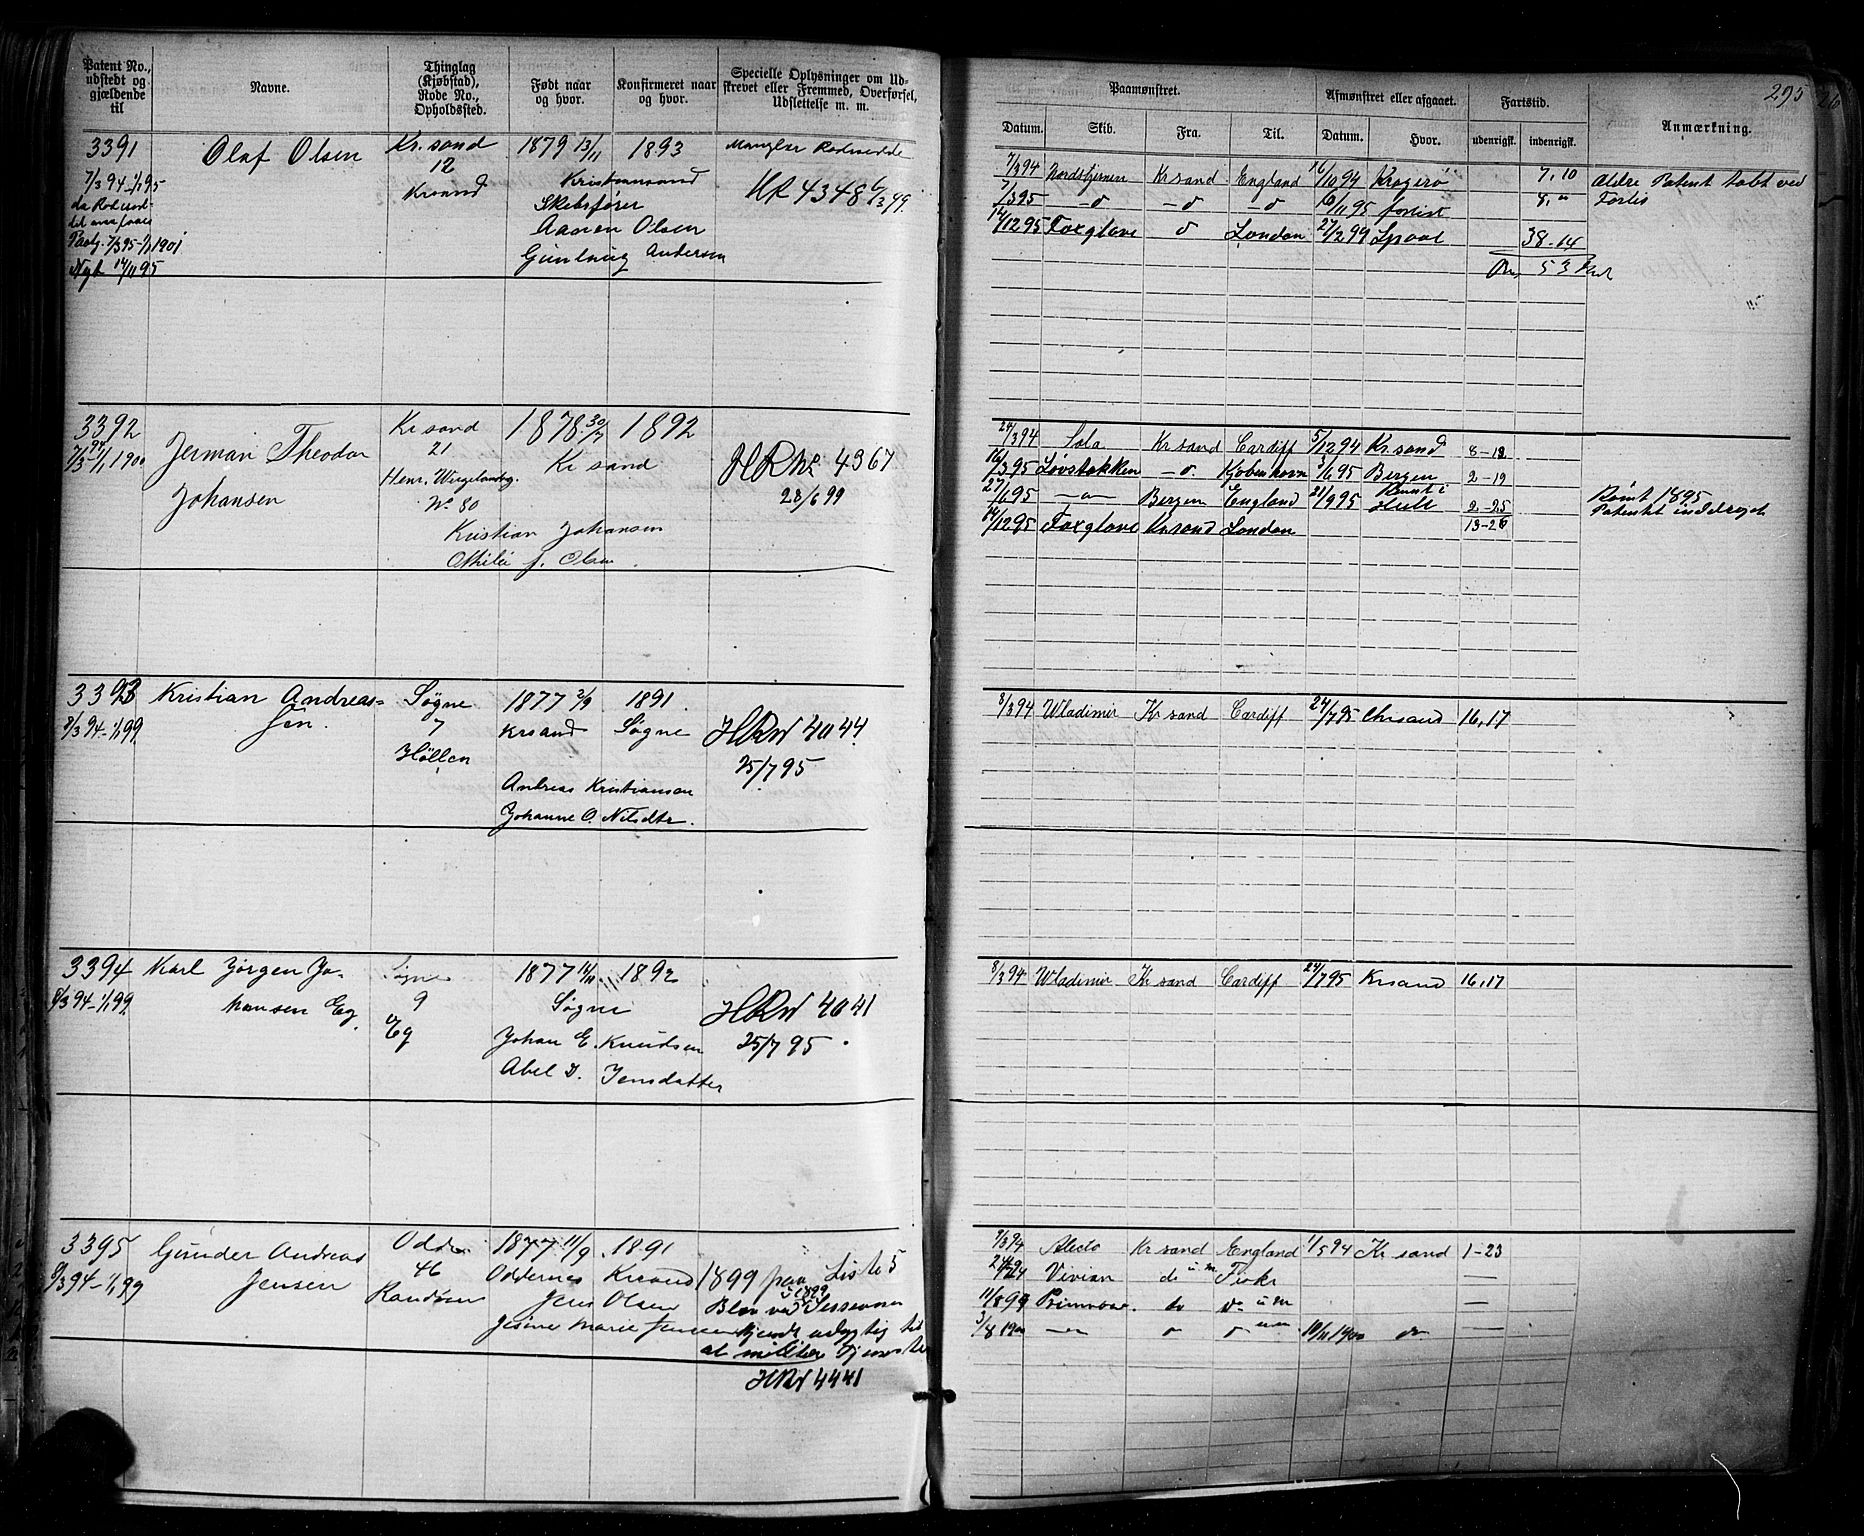 Patent No., udstedt og gjældende til
Navne.
Thinglag (Kjøbstad), Rode No., Opholdssted.
Født naar og hvor.
Konfirmeret naar og hvor.
Specielle Oplysninger om Udskrevet eller Fremmed, Overførsel, Udslettelse m. m.
Paamønstret.
Afmønstret eller afgaaet.
Fartstid.
295
Datum. Skib. Fra. Til. Datum. Hvor. udenrigsk. indenrigsk. Anmærkning.
3391 Olaf Olsen Kr.sand 1879 13/11 1893 Mangler Rodesedde
12
7/3 94-1/1 95 Krsand Kristianssand HR 4348 6/3 99.
Aanen Olsen
Andersen
Nyt 14/11 95
7/3 94 Nordstjernen Kr sand England 16/10 94 Kragerø 7,10 Ældre Patent tabt ved
7/3 95 -o- -o- -o- 6/11 95 forlist 8,"  Forlis
14/12 95 Foxglove o London 27/2 99 38-14
53
3392 Jerman Theodor Kr sand 1878 30/7 1892
7/3 94-1/1 1900 21 Kr sand HR No 4367
Johansen Henr. Wergelandsg. 28/6 99
No 80
Kristian Johansen
Olsen
24/3 94 Sola Kr sand Cardiff 5/12 94 Kr.sand 8-12
16/3 95 Løvstakken -o- Kjøbenhavn 3/6 95 Bergen 2-19
27/6 95 -o- Bergen England 21/9 95 Rømt i 2-25 Rømt 1895
14/12 95 Foxglove Krsand London 13-26 Patentet inddraget
3393 Kristian Andreas- Søgne 1877 2/9 1891
8/3 94-1/1 99 sen. 7 Krsand Søgne HRN 4044
Høllen 25/7 95
Andreas Kristiansen
Johanne O. Nilsdtr.
8/3 94 Wladimir Kr sand Cardiff 24/7 95 Chrsand 16,17
3394 Karl Jørgen Jo- Søgne 1877 11/11 1892
8/3 94-1/1 99 hansen Eg. 9 Søgne HRN 4041
Eg Johan E. Knudsen 25/7 95
Abel J. Jensdatter
8/3 94 Wladimir Kr sand Cardiff 24/7 95 Krsand 16,17
3395 Gunder Andreas Odde 1877 11/9 1891
8/3 94-1/1 99 Jensen 46 Oddernes Krsand 1899 paa Liste 5
Randøen Jens Olsen Blev ved Sessionen
i 1899
Jesine Marie Jensen kjendt udygtig til
al militær Tjeneste
HRN 4441
9/3 94 Alecto Kr sand England 1/5 94 Kr sand 1-23
Vivian do u m Fiske —
11/8 99 Primrose do do u m —
3/8 1900 -o- o o 10/11 1900 do —